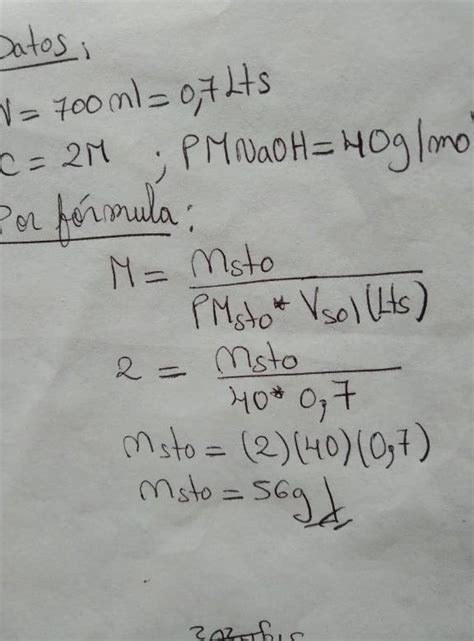 Datos;
V = 700ml = 0,7 Lts
C = 2M ; PMNaOH = 40g/mo
Por fórmula:
M = msto / PMsto * Vsol (Lts)
2 = msto / 40 * 0,7
msto = (2)(40)(0,7)
msto = 56g